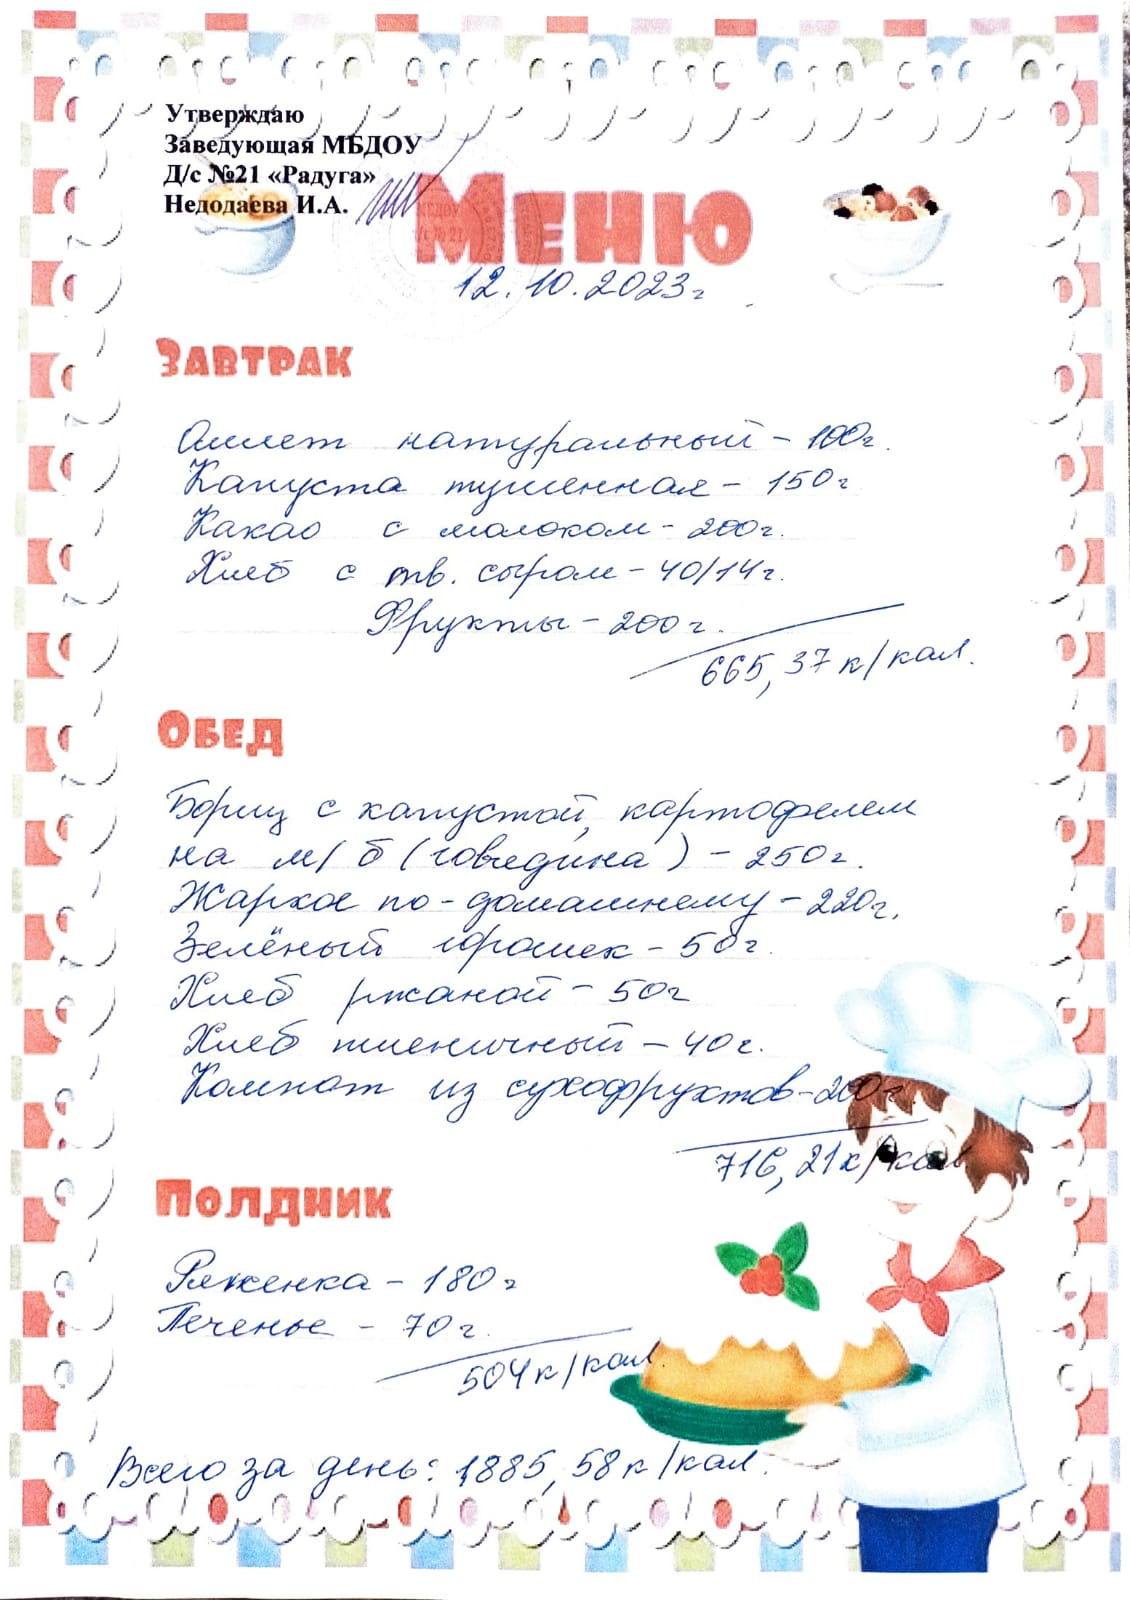 Утверждаю
Заведующая МБДОУ
Д/с №21 «Радуга»
Недодаева И.А.
Меню
12.10.2023г
Завтрак
Омлет натуральный - 100г.
Капуста тушенная - 150г
Какао с молоком - 200г.
Хлеб с тв. сыром - 40/14г.
Фрукты - 200г.
665,37 к/кал.
Обед
Борщ с капустой, картофелем
на м/б (говядина) - 250г.
Жаркое по-домашнему - 220г.
Зелёный горошек - 50г.
Хлеб ржаной - 50г
Хлеб пшеничный - 40г.
Компот из сухофруктов - 200г.
716,21 к/кал
Полдник
Ряженка - 180г
Печенье - 70г.
504 к/кал.
Всего за день: 1885,58 к/кал.